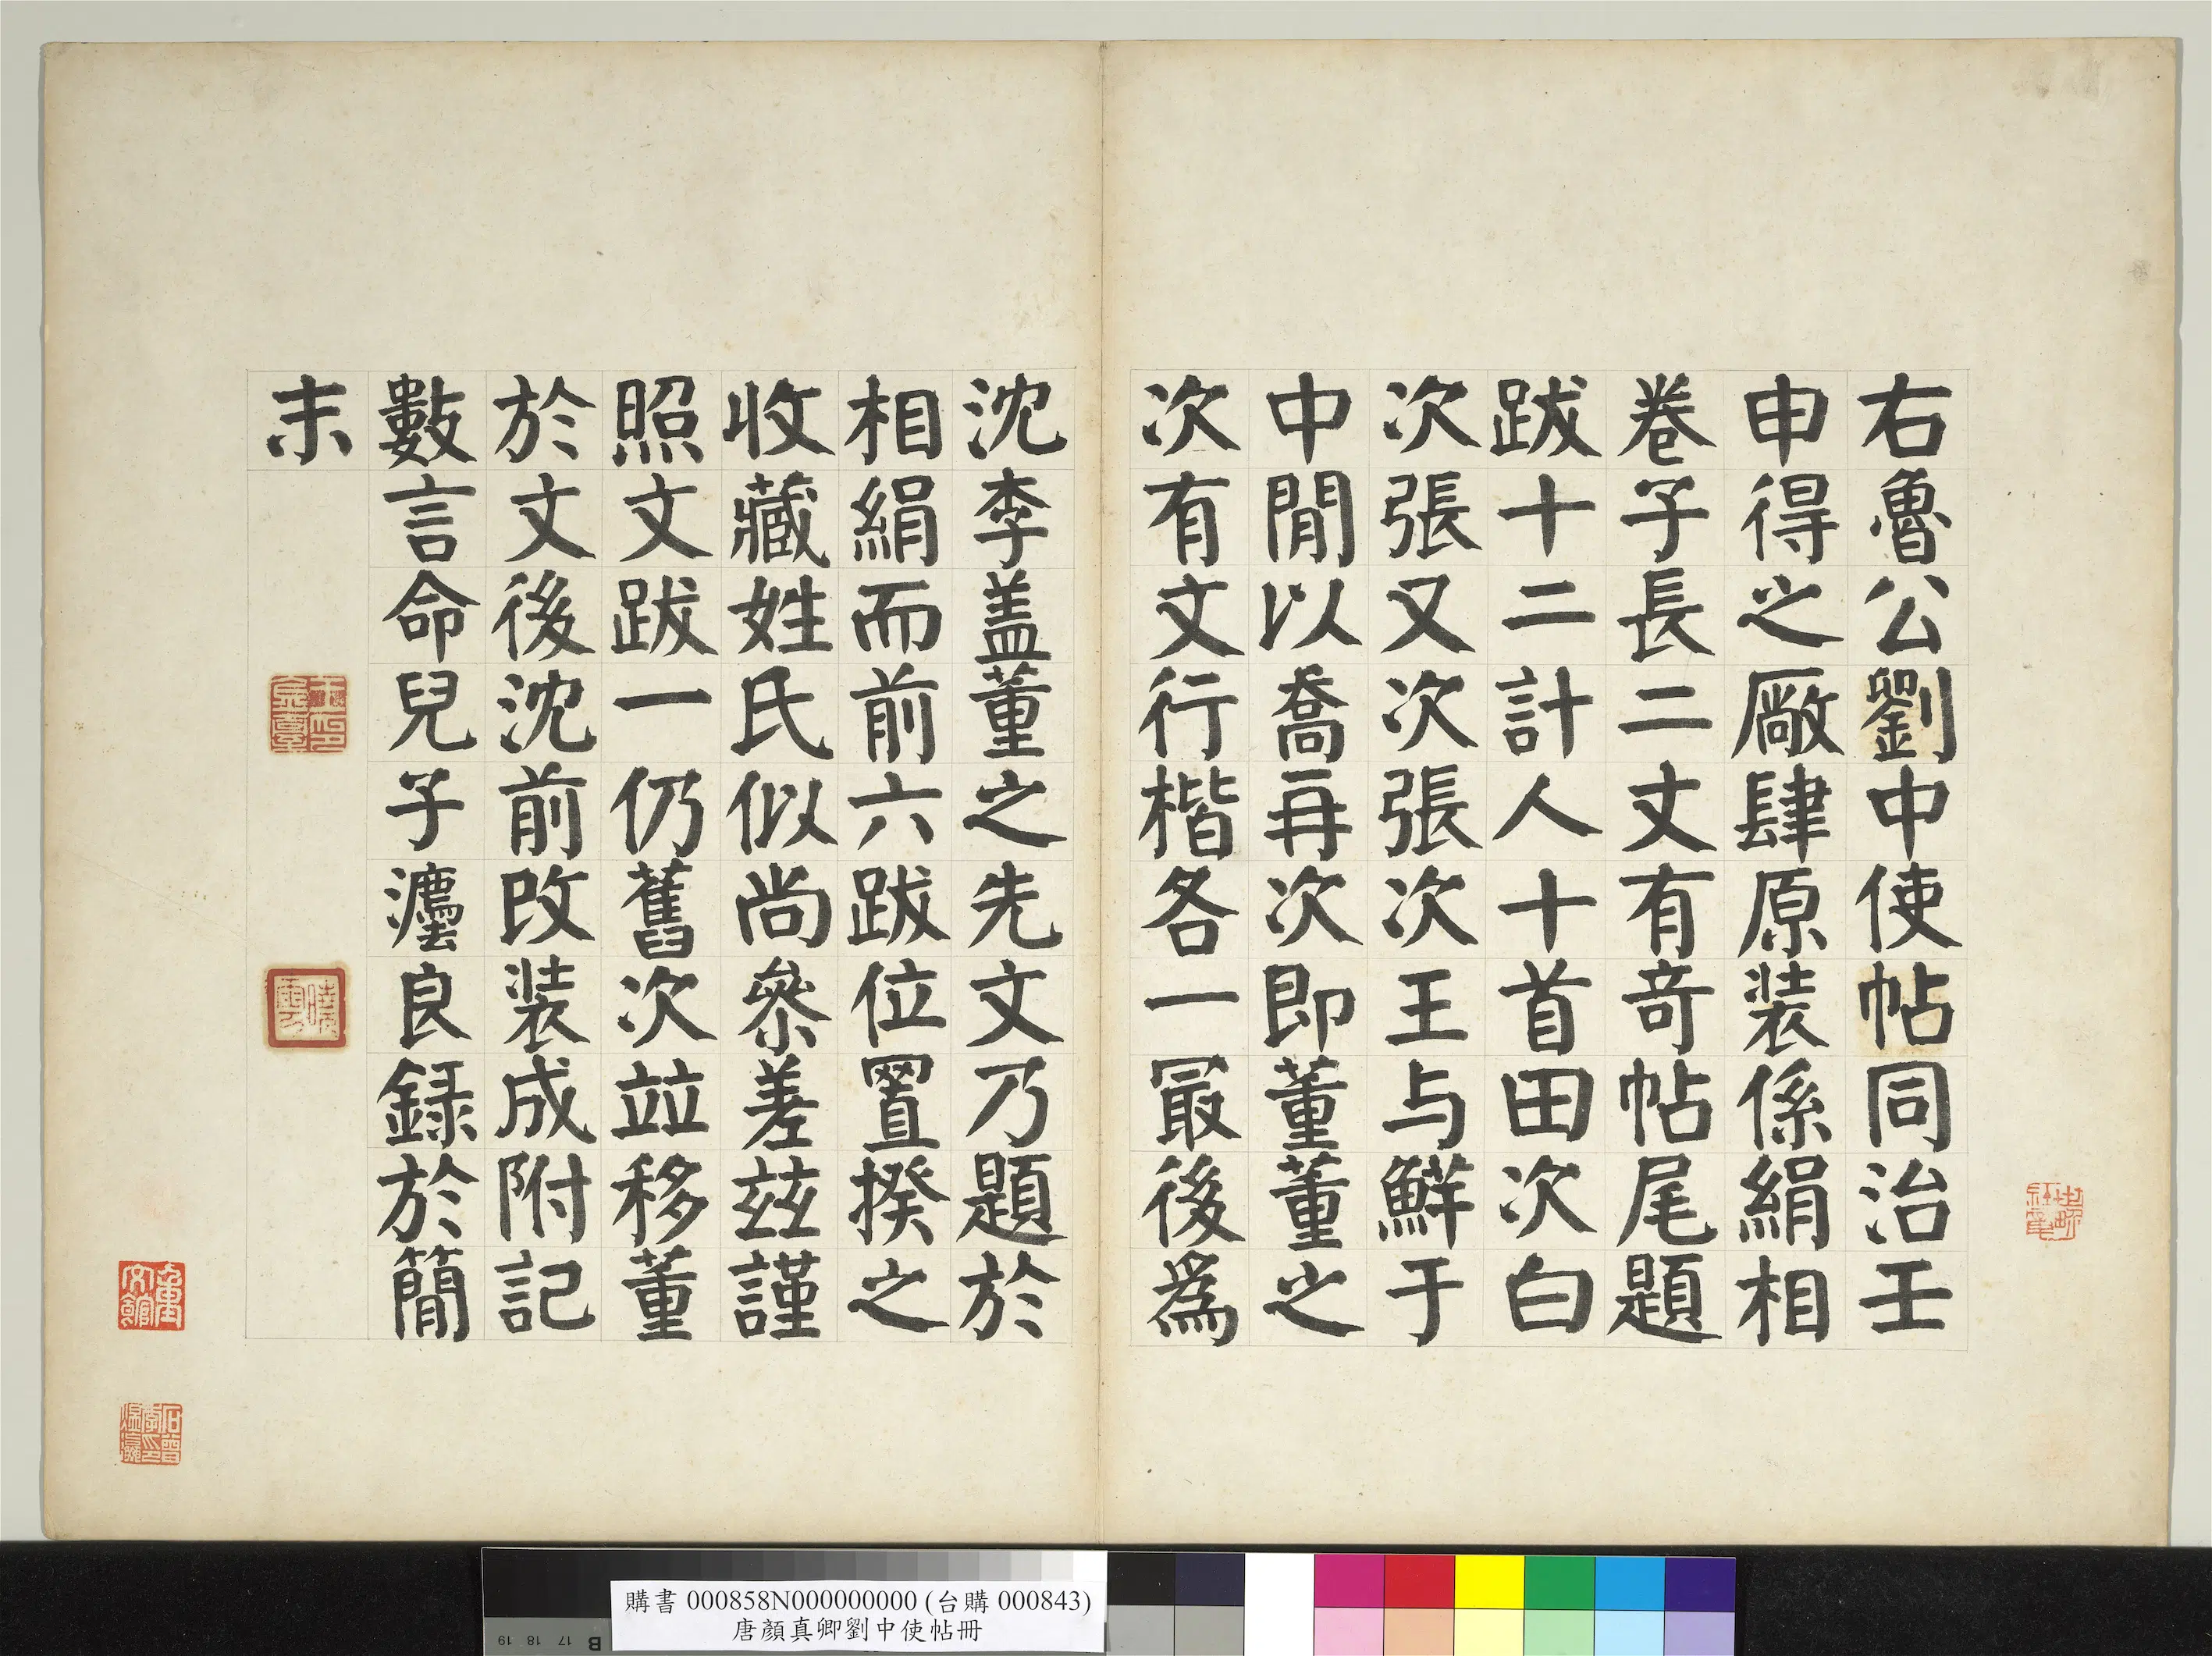 右魯公劉中使帖同治壬
申得之厰肆原装係絹相
卷子長二丈有竒帖尾題
跋十二計人十首田次白
次張又次張次王与鮮于
中閒以喬再次即董董之
次有文行楷各一最後爲
沈李盖董之先文乃題於
相絹而前六跋位置揆之
收藏姓氏似尚叅差茲謹
照文跋一仍舊次竝移董
於文後沈前改装成附記
數言命兒子瀍良録於簡
末
購書 000858N000000000 (台購 000843)
唐顏真卿劉中使帖冊
19 18 17 B